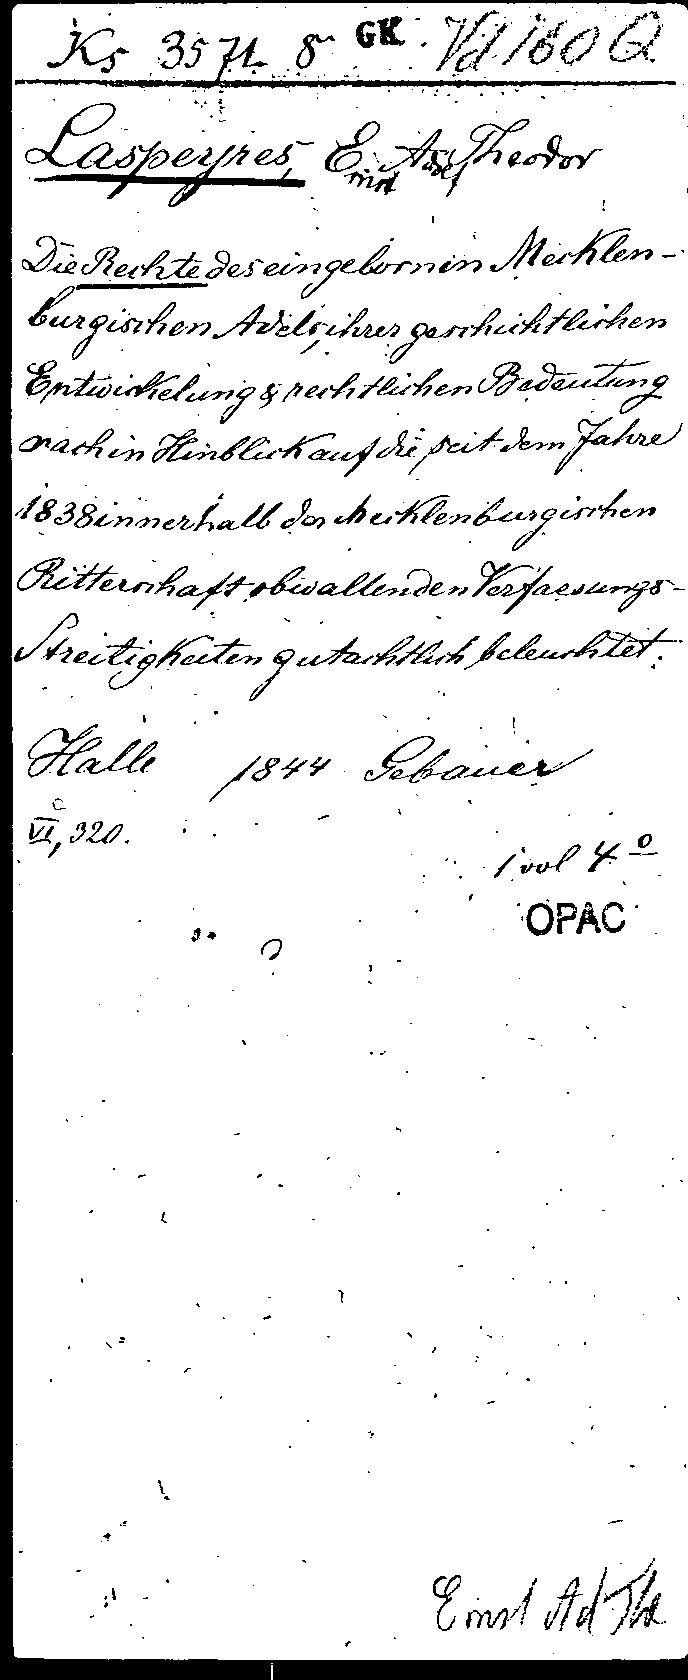 Ks 3571 8° GK Vd 160 Q
Laspeyres, E. Ad. Theodor
rnst
Die Rechte des eingebornen Mecklen-
burgischen Adels, ihrer geschichtlichen
Entwickelung & rechtlichen Bedeutung
nach in Hinblick auf die, seit dem Jahre
1838 innerhalb der Mecklenburgischen
Ritterschaft obwaltenden Verfassungs-
Streitigkeiten gutachtlich beleuchtet.
Halle 1844 Gebauer
VI, 320.
1 vol 4º
OPAC
Ernst Ad The